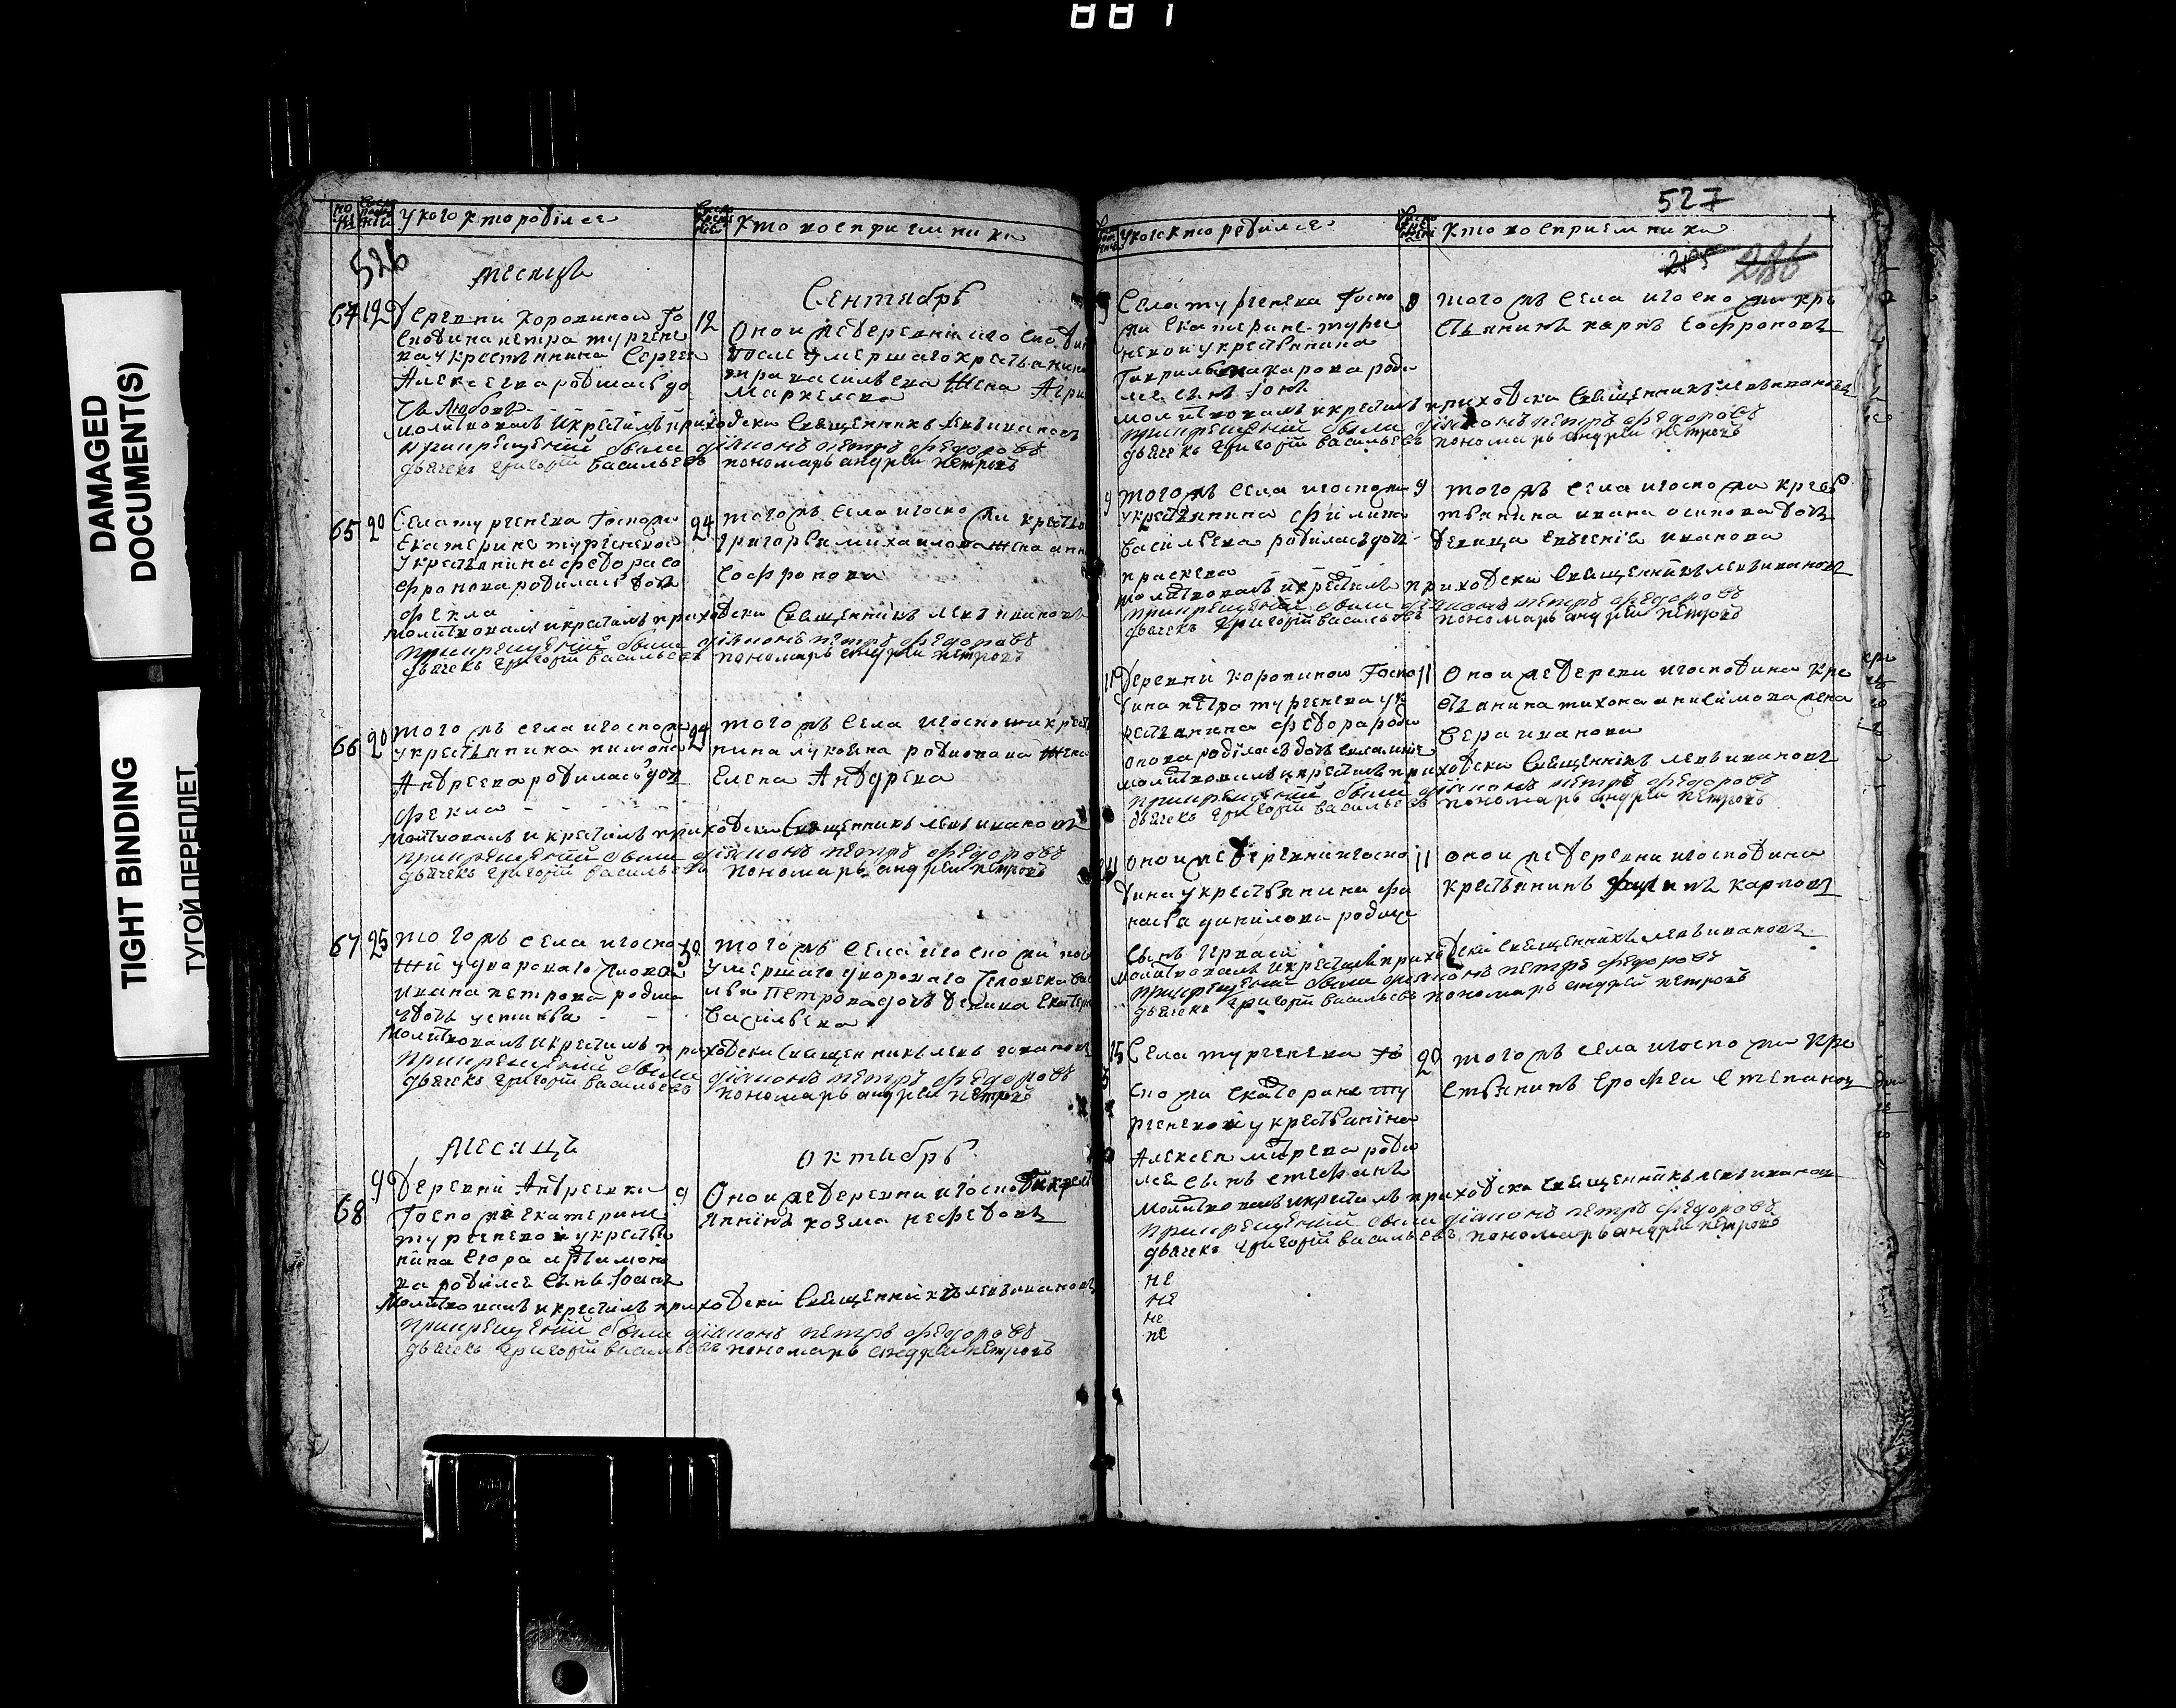 881
DAMAGED
DOCUMENT(S)
TIGHT BINDING
ТУГОЙ ПЕРЕПЛЕТ
У кого кто родился
Кто восприемники
526
месяцъ
Сентябрь
64 12 Деревни Коровиной Го
сподина петра тургене
ва у крестьянина Сергея
Алексеева родилась до
чь Любовь
12 Оной же деревни и господи
после умершаго крестьянина
васильева жена
Маркелова
молитвовалъ и крестилъ приходски Священникъ левъ ивановъ
при крещении были дияконъ петръ федоровъ
дьячекъ григорий васильевъ пономарь андрей петровъ
65 20 Села тургенева Госпожи
Екатерины тургеневой
у крестьянина федора со
фронова родилась дочь
фекла
24 того жъ села и госпожи крестья
григорья михайлова жена анн
Софронова
молитвовалъ и крестилъ приходски Священникъ левъ ивановъ
при крещении были дияконъ петръ федоровъ
дьячекъ григорий васильевъ пономарь андрей петровъ
66 20 того жъ села и госпожи
у крестьянина
Андреева родилась дочь
фекла
24 того жъ Села и госпожи крест
нина родионова жена
Елена Андреева
молитвовалъ и крестилъ приходски Священникъ левъ ивановъ
при крещении были дияконъ петръ федоровъ
дьячекъ григорий васильевъ пономарь андрей петровъ
67 25 того жъ села и госпо
жи у двороваго человека
ивана петрова родила
сь дочь устинья
30 того жъ Села и госпожи
умершаго двороваго человека
Петрова дочь девица Екатер
Васильева
Молитвовалъ и крестилъ приходски Священникъ левъ ивановъ
при крещении были дияконъ петръ федоровъ
дьячекъ григорий васильевъ пономарь андрей петровъ
Месяцъ
октябрь
68 9 Деревни Андреевки
Госпожи екатерины
тургеневой у крестья
нина егора
ва родился сынъ Iоанъ
9 Оной же деревни и господи крест
янинъ козма нефедовъ
Молитвовалъ и крестилъ приходски Священникъ левъ ивановъ
при крещении были дияконъ петръ федоровъ
дьячекъ григорий васильевъ пономарь андрей петровъ
527
У кого кто родился
Кто восприемники
285 286
Села тургенева Госпо
жи Екатерины турге
невой у крестьянина
Гаврилы макарова роди
лся сынъ
8 того жъ Села и госпожи кре
стьянинъ карпъ Софроновъ
молитвовалъ и крестилъ приходски Священникъ левъ ивановъ
при крещении были дияконъ петръ федоровъ
дьячекъ григорий васильевъ пономарь андрей петровъ
9 того жъ Села и госпожи
у крестьянина филипа
Васильева родилась дочь
праскева
9 того жъ села и госпожи кресь
тьянина ивана осипова дочь
девица евгения иванова
молитвовалъ и крестилъ приходски Священникъ левъ ивановъ
при крещении были дияконъ петръ федоровъ
дьячекъ григорий васильевъ пономарь андрей петровъ
Деревни Коровиной Госпо
дина петра тургенева у к
рестьянина федора роди
онова родилась дочь
11 Оной же деревни и господина кре
стьянина тихона анисимова жена
Вера иванова
молитвовалъ и крестилъ приходски Священникъ левъ ивановъ
при крещении были дияконъ петръ федоровъ
дьячекъ григорий васильевъ пономарь андрей петровъ
11 оной же деревни и госпо
дина у крестьянина афа
насья данилова родился
сынъ
11 оной же деревни и господина
крестьянинъ карповъ
молитвовалъ и крестилъ приходски Священникъ левъ ивановъ
при крещении были дияконъ петръ федоровъ
дьячекъ григорий васильевъ пономарь андрей петровъ
15 Села тургенева го
спожи Екатерины ту
ргеневой у крестьянина
Алексея роди
лся сынъ стефанъ
20 того жъ села и госпожи кре
стьянинъ Ерофей Степановъ
Молитвовалъ и крестилъ приходски Священникъ левъ ивановъ
при крещении были дияконъ петръ федоровъ
дьячекъ григорий васильевъ пономарь андрей петровъ
не
не
не
не